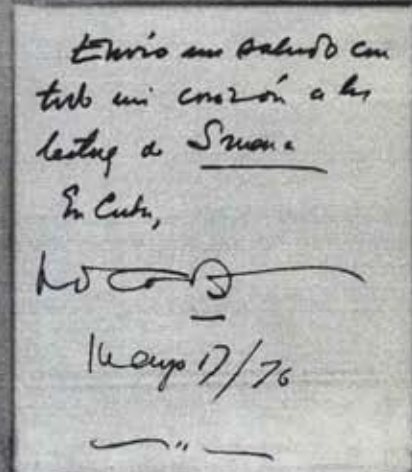 Envío un saludo con
todo mi corazón a los
lectores de Semana
En Cuba,
Mayo 17/76